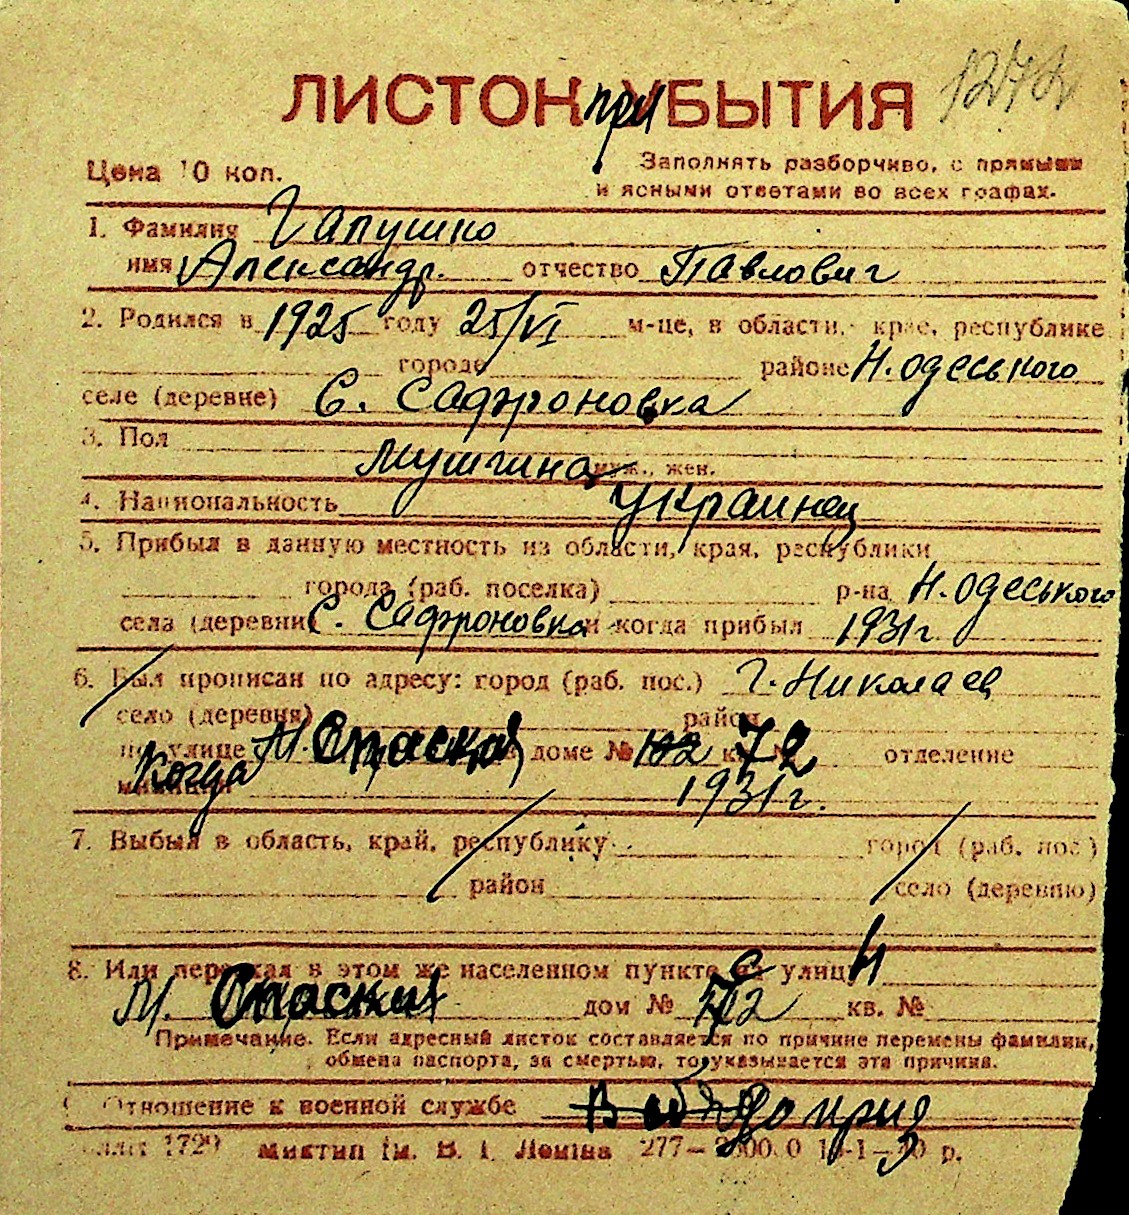 ЛИСТОК при УБЫТИЯ
Цена 10 коп.
Заполнять разборчиво, с прямыми
и ясными ответами во всех графах.
1. Фамилия Гапушко
имя Александр. отчество Павлович
2. Родился в 1925 году 25/VI м-це, в области, крае, республике
городе районе Н. Одеського
селе (деревне) С. Сафроновка
3. Пол Мушгина муж., жен.
4. Национальность Украинец
5. Прибыл в данную местность из области, края, республики
города (раб. поселка) р-на Н. Одеського
села (деревни) С. Сафроновка и когда прибыл 1931 г
6. Был прописан по адресу: город (раб. пос.) г. Николаев
село (деревня) район
по улице М. Спаская в доме № 72 отделение
милиции Когда 1931 г.
7. Выбыл в область, край, республику город (раб. пос.)
район село (деревню)
8. Или переехал в этом же населенном пункте с улицы
М. дом № 72 кв. №
Примечание. Если адресный листок составляется по причине перемены фамилии,
обмена паспорта, за смертью, то указывается эта причина.
Отношение к военной службе До приз
Миктип ім. В. І. Леніна 277—